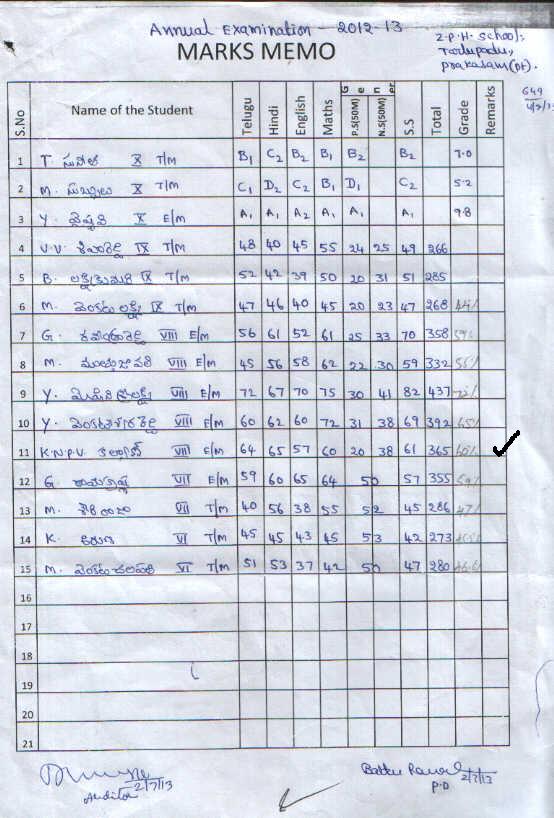 Annual Examination - 2012-13
MARKS MEMO
Z.P.H. School,
Tadupadu,
prakasam(Dt).
649
S.No Name of the Student Telugu Hindi English Maths Gener P.S(50M) N.S(50M) S.S Total Grade Remarks
1 T. సునీత X T/M B1 C2 B2 B1 B2 B2 7.0
2 M. సుబ్బులు X T/M C1 D2 C2 B1 D1 C2 5.2
3 Y. వైష్ణవి X E/M A1 A1 A2 A1 A1 A1 9.8
4 V.V. IX T/M 48 40 45 55 24 25 49 266
5 B. లక్ష్మీకుమారి IX T/M 52 42 39 50 20 31 51 285
6 M. వెంకటలక్ష్మి IX T/M 47 46 40 45 20 23 47 268
7 G. VIII E/M 56 61 52 61 25 33 70 358
8 M. VIII E/M 45 56 58 62 22 30 59 332
9 Y. VIII E/M 72 67 70 75 30 41 82 437
10 Y. VIII E/M 60 62 60 72 31 38 69 392
11 K.N.P.V. కళ్యాణ్ VIII E/M 64 65 57 60 20 38 61 365
12 G. రామకృష్ణ VII E/M 59 60 65 64 50 57 355
13 M. VII T/M 40 56 38 55 52 45 286
14 K. కరుణ VI T/M 45 45 43 45 53 42 273
15 M. వెంకటచలపతి VI T/M 51 53 37 42 50 47 280
16
17
18
19
20
21
2/7/13
Auditor
2/7/13
P.D